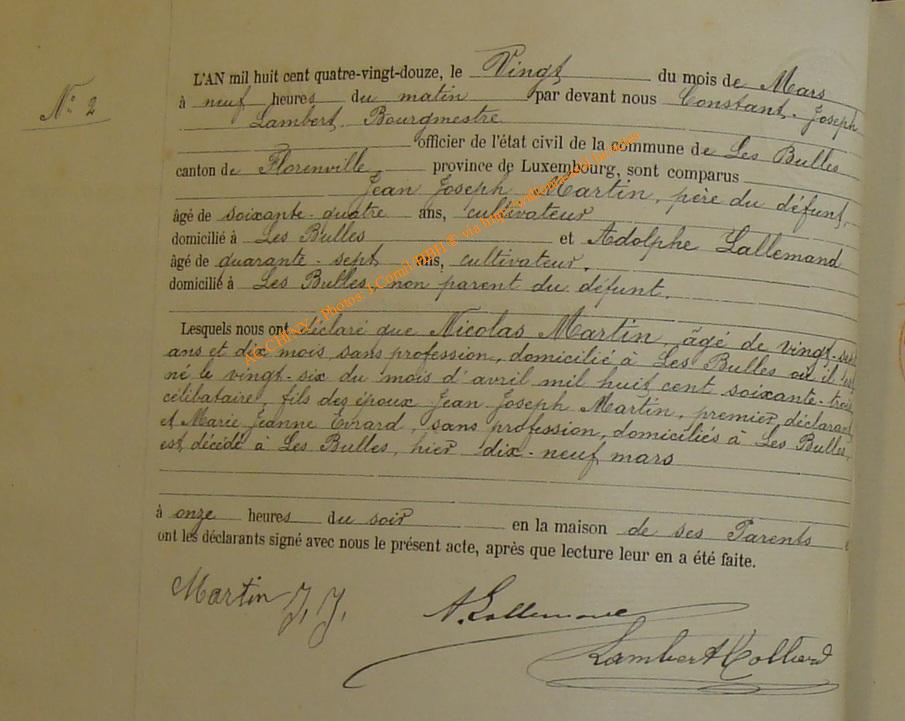 N° 2
L'AN mil huit cent quatre-vingt-douze, le Vingt du mois de Mars
à neuf heures du matin par devant nous Constant-Joseph
Lambert Bourgmestre
officier de l'état civil de la commune de Les Bulles
canton de Florenville province de Luxembourg, sont comparus
Jean Joseph Martin, père du défunt,
âgé de soixante-quatre ans, cultivateur
domicilié à Les Bulles et Adolphe Lallemand
âgé de quarante-sept ans, cultivateur,
domicilié à Les Bulles non parent du défunt.
Lesquels nous ont déclaré que Nicolas Martin, âgé de vingt-
ans et dix mois, sans profession, domicilié à Les Bulles où il est
né le vingt-six du mois d'avril mil huit cent soixante-trois
célibataire, fils des époux Jean Joseph Martin, premier déclarant
et Marie Jeanne Evrard, sans profession, domiciliés à Les Bulles,
est décédé à Les Bulles, hier dix-neuf mars
à onze heures du soir en la maison de ses Parents
ont les déclarants signé avec nous le présent acte, après que lecture leur en a été faite.
Martin J. J.
A. Lallemand
Lambert